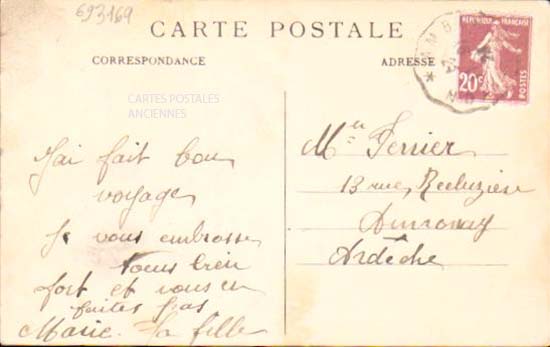 693169
CARTE POSTALE
CORRESPONDANCE
ADRESSE
RÉPUBLIQUE FRANÇAISE
20c
POSTES
CARTES POSTALES
ANCIENNES
J'ai fait bon
voyage
Je vous embrasse
tous bien
fort et vous en
faites pas
Marie. la fille
Mer Ferrier
13 rue
Annonay
Ardèche